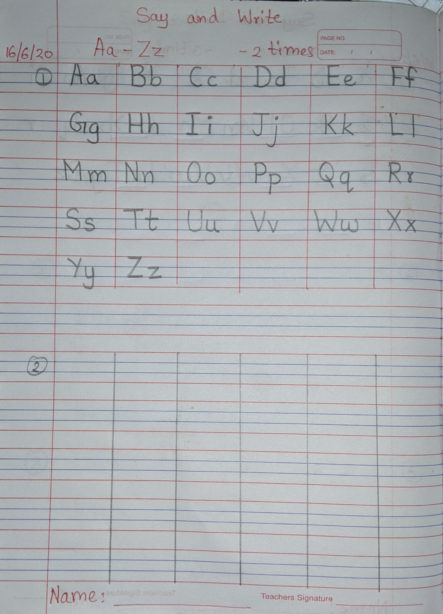 Say and Write
16/6/20 Aa - Zz - 2 times
PAGE NO.
DATE: / /
① Aa Bb Cc Dd Ee Ff
Gg Hh Ii Jj Kk Ll
Mm Nn Oo Pp Qq Rr
Ss Tt Uu Vv Ww Xx
Yy Zz
②
Name:
Teachers Signature